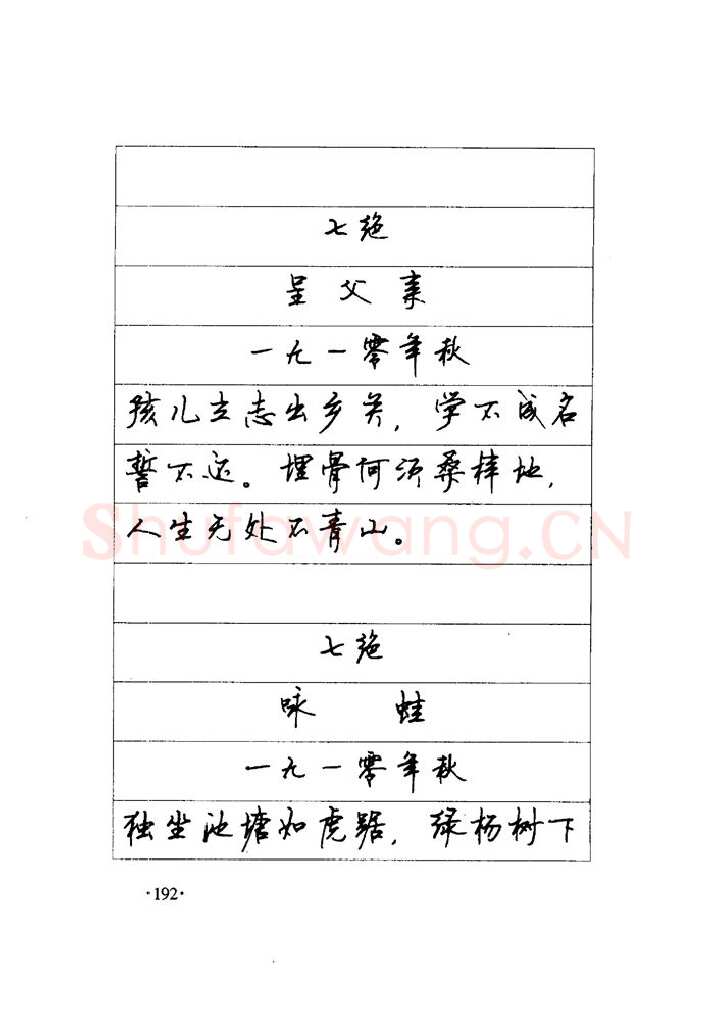 七绝
呈父亲
一九一零年秋
孩儿立志出乡关，学不成名
誓不还。埋骨何须桑梓地，
人生无处不青山。
Shufawang.CN
七绝
咏 蛙
一九一零年秋
独坐池塘如虎踞，绿杨树下
·192·